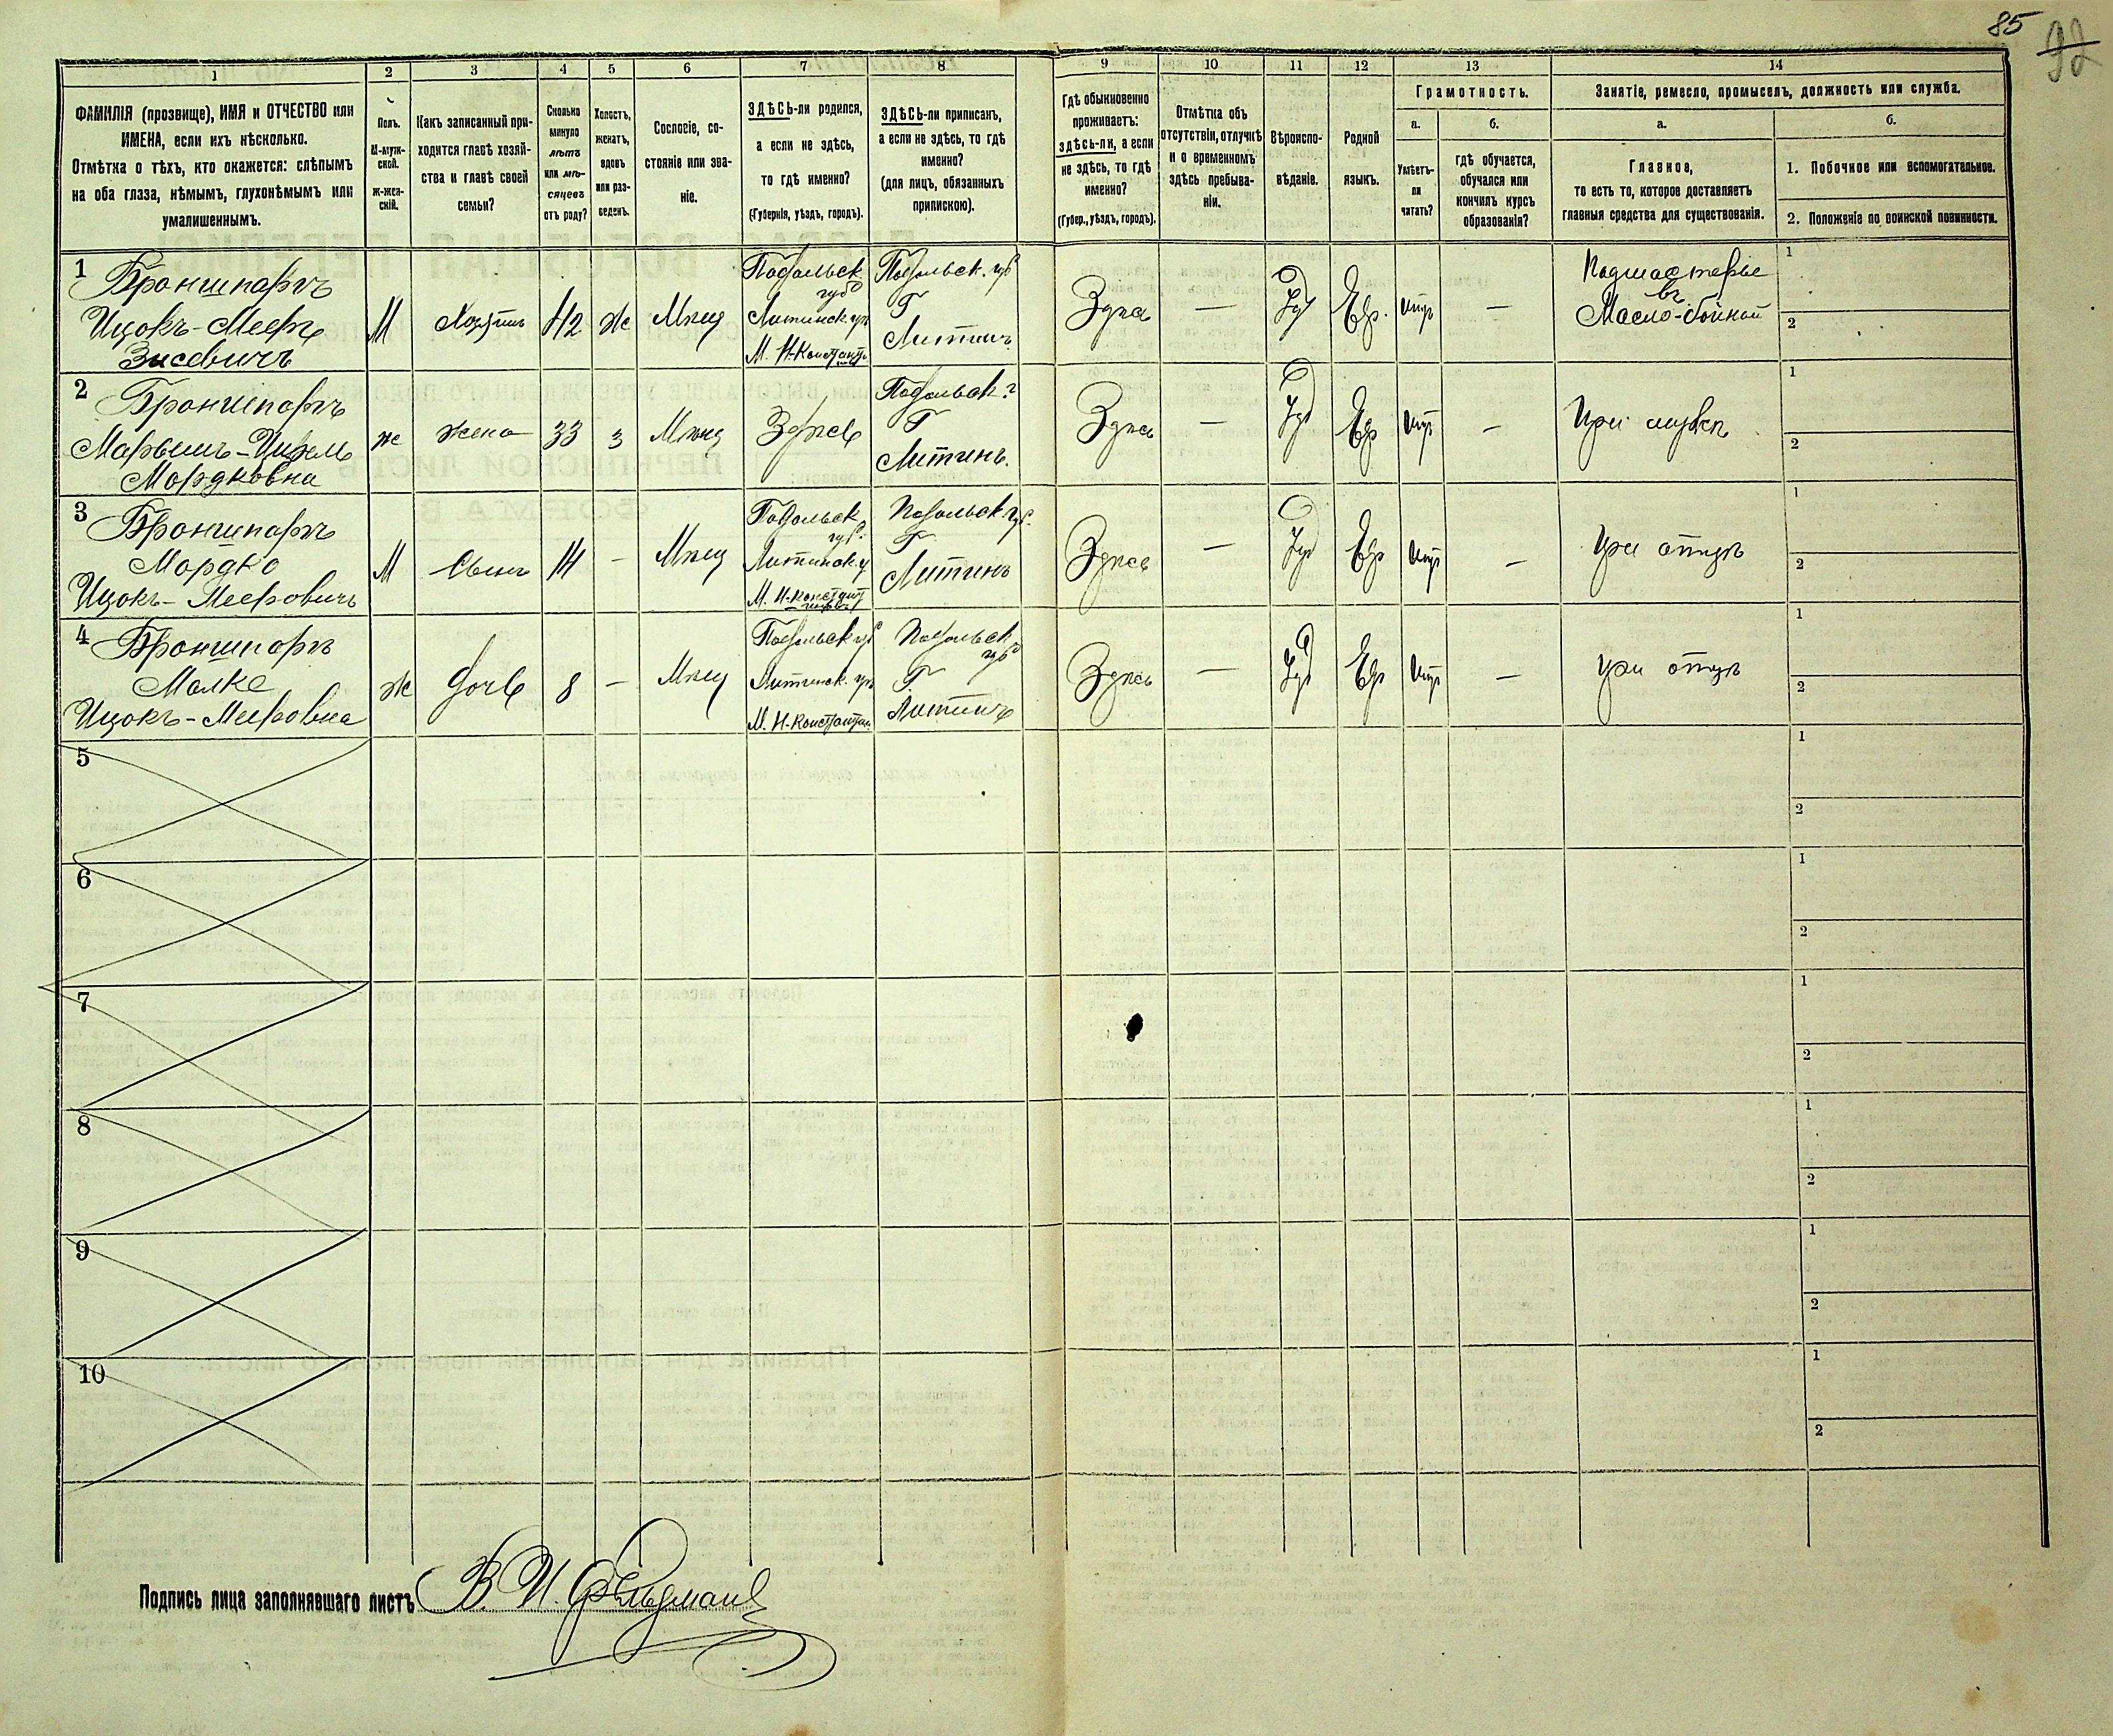 85
92
1
2
3
4
5
6
7
8
9
10
11
12
13
14
ФАМИЛІЯ (прозвище), ИМЯ и ОТЧЕСТВО или
ИМЕНА, если ихъ нѣсколько.
Отмѣтка о тѣхъ, кто окажется: слѣпымъ
на оба глаза, нѣмымъ, глухонѣмымъ или
умалишеннымъ.
Полъ.
М-муж-
ской.
ж-жен-
скій.
Какъ записанный при-
ходится главѣ хозяй-
ства и главѣ своей
семьи?
Сколько
минуло
лѣтъ
или мѣ-
сяцевъ
отъ роду?
Холостъ,
женатъ,
вдовъ
или раз-
веденъ.
Сословіе, со-
стояніе или зва-
ніе.
ЗДѢСЬ-ли родился,
а если не здѣсь,
то гдѣ именно?
(Губернія, уѣздъ, городъ).
ЗДѢСЬ-ли приписанъ,
а если не здѣсь, то гдѣ
именно?
(для лицъ, обязанныхъ
припискою).
Гдѣ обыкновенно
проживаетъ:
здѣсь-ли, а если
не здѣсь, то гдѣ
именно?
(Губер., уѣздъ, городъ).
Отмѣтка объ
отсутствіи, отлучкѣ
и о временномъ
здѣсь пребыва-
ніи.
Вѣроиспо-
вѣданіе.
Родной
языкъ.
Грамотность.
а.
Умѣетъ-
ли
читать?
б.
гдѣ обучается,
обучался или
кончилъ курсъ
образованія?
Занятіе, ремесло, промыселъ, должность или служба.
а.
Главное,
то есть то, которое доставляетъ
главныя средства для существованія.
б.
1. Побочное или вспомогательное.
2. Положеніе по воинской повинности.
1
Броншпаръ
Ицокъ-Мееръ
Зисевичъ
М
Хозяинъ
42
Ж
Мѣщ
Подольск.
губ
Литинск. уѣ
М. Н-Констант
Подольск. губ
Г
Литинъ
Здѣсь
—
Іуд
Евр.
—
Подмастерье
въ
Масло-бойной
1
2
2
Броншпаръ
Марьямъ-Цирль
Мордковна
ж
жена
33
з
Мѣщ
Здѣсь
Подольск. г
Г
Литинъ.
Здѣсь
—
Іуд
Евр
—
При мужѣ
1
2
3
Броншпаръ
Мордко
Ицокъ-Мееровичъ
М
Сынъ
14
—
Мѣщ
Подольск
губ.
Литинск у
М. Н-Констант
Подольск. губ.
Г.
Литинъ
Здѣсь
—
Іуд
Евр
—
При отцѣ
1
2
4
Броншпаръ
Малке
Ицокъ-Мееровна
Ж
дочь
8
—
Мѣщ
Подольск губ
Литинск. уѣ
М. Н-Константин
Подольск
губ
Г
Литинъ
Здѣсь
—
Іуд
Евр
—
При отцѣ
1
2
5
1
2
6
1
2
7
1
2
8
1
2
9
1
2
10
1
2
Подпись лица заполнявшаго листъ В. И. Фельдманъ